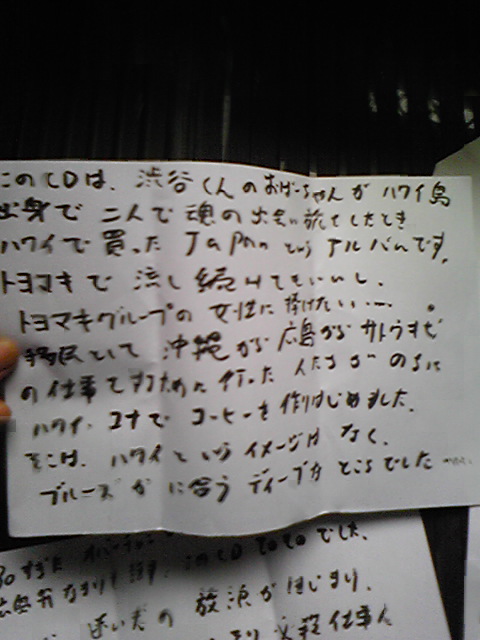 このCDは、渋谷くんのおばーちゃんがハワイ島
出身で二人で魂の出会い旅をしたとき
ハワイで買った Japan というアルバムです。
トヨマキで流し続けてもいいし、
トヨマキグループの女性に捧げたい……。
移民として沖縄から広島からサトウキビ
の仕事をするために行った人たちがのちに
ハワイ、コナでコーヒーを作りはじめました。
そこは、ハワイというイメージはなく、
ブルーズがに合うディープなところでした……
このCDでした。
広島弁なまり
放浪がはじまり、
仕事人